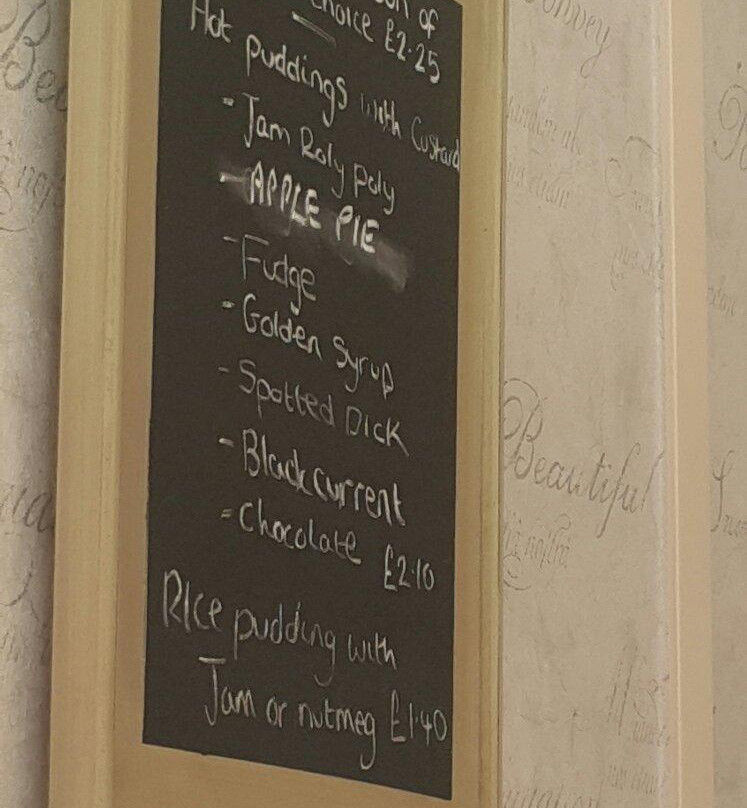 of
choice £2.25
Hot puddings with Custard
- Jam Roly poly
- APPLE PIE
- Fudge
- Golden Syrup
- Spotted Dick
- Blackcurrent
- Chocolate £2.10
Rice pudding with
Jam or nutmeg £1.40
Beautiful